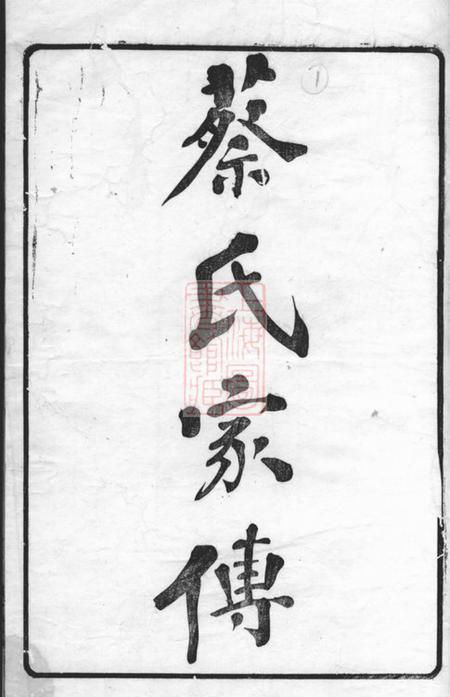 蔡氏家傳
1